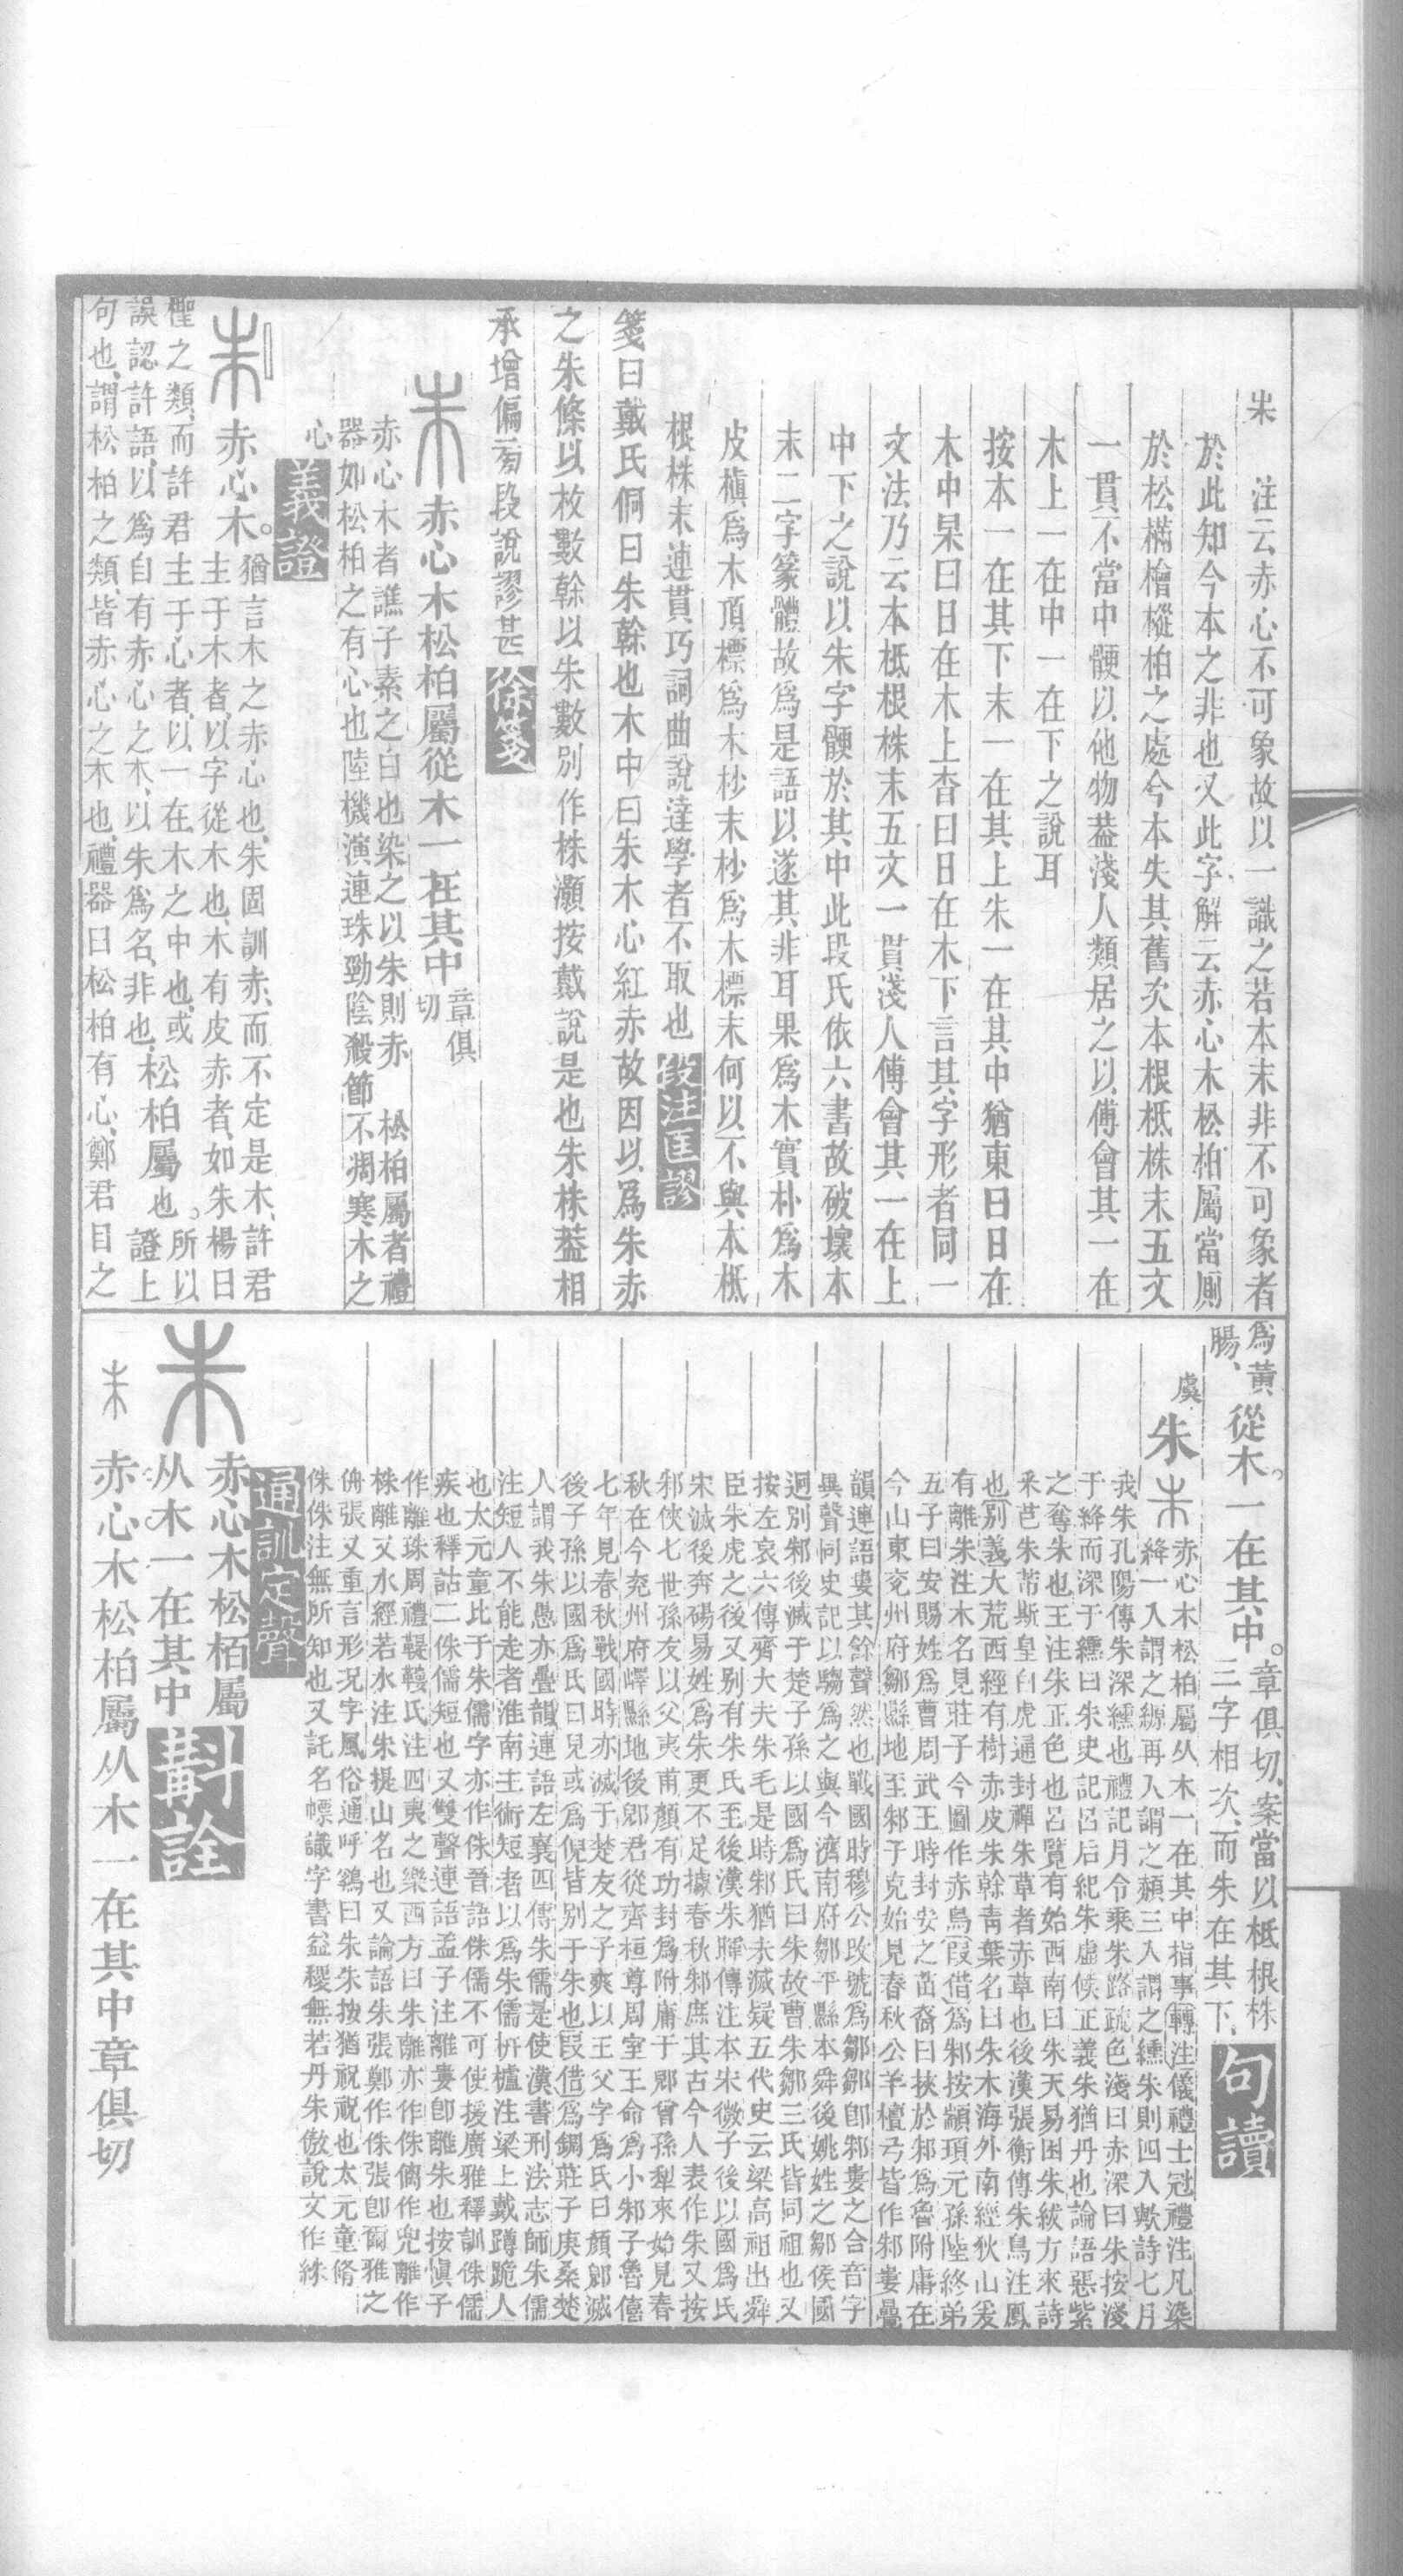 朱　注云赤心不可象故以一識之若本末非不可象者
於此知今本之非也又此字解云赤心木松柏屬當廁
於松樠檜樅柏之處今本失其舊次本根柢株末五文
一貫不當中骾以他物葢淺人類居之以傅會其一在
木上一在中一在下之說耳
按本一在其下末一在其上朱一在其中猶東曰日在
木中杲曰日在木上杳曰日在木下言其字形者同一
文法乃云本柢根株末五文一貫淺人傅會其一在上
中下之說以朱字骾於其中此段氏依六書故破壞本
末二字篆體故爲是語以遂其非耳果爲木實朴爲木
皮槙爲木頂標爲木杪末杪爲木標末何以不與本柢
根株末連貫巧詞曲說達學者不取也 段注匡謬
箋曰戴氏侗曰朱榦也木中曰朱木心紅赤故因以爲朱赤
之朱條以枚數榦以朱數別作株灝按戴說是也朱株葢相
承增偏菊段說謬甚 徐箋
朱 赤心木松柏屬從木一在其中 章俱
切
赤心木者譙子素之白也染之以朱則赤　松柏屬者禮
器如松柏之有心也陸機演連珠勁陰殺節不凋寒木之
心 義證
朱 赤心木。猶言木之赤心也、朱固訓赤、而不定是木、許君
主于木者、以字從木也、木有皮赤者、如朱楊曰
檉之類、而許君主于心者、以一在木之中也、或
誤認許語、以爲自有赤心之木、以朱爲名、非也、松柏屬也。所以
證上
句也、謂松柏之類、皆赤心之木也、禮器曰松柏有心、鄭君目之
爲黃
腸、從木。一在其中。章俱切、案當以柢根株
三字相次、而朱在其下、 句讀
虞 朱 朱 赤心木松柏屬从木一在其中指事轉注儀禮士冠禮注凡染
絳一入謂之縓再入謂之赬三入謂之纁朱則四入歟詩七月
我朱孔陽傳朱深纁也禮記月令乘朱路疏色淺曰赤深曰朱按淺
于絳而深于纁曰朱史記呂后紀朱虛侯正義朱猶丹也論語惡紫
之奪朱也王注朱正色也呂覽有始西南曰朱天易困朱紱方來詩
采芑朱芾斯皇白虎通封禪朱草者赤草也後漢張衡傳朱鳥注鳳
也別義大荒西經有樹赤皮朱榦靑葉名曰朱木海外南經狄山爰
有離朱注木名見莊子今圖作赤鳥假借爲邾按顓頊元孫陸終弟
五子曰安賜姓爲曹周武王時封安之苗裔曰挾於邾爲魯附庸在
今山東兖州府鄒縣地至邾子克始見春秋公羊檀弓皆作邾婁曡
韻連語婁其餘聲然也戰國時穆公改號爲鄒鄒卽邾婁之合音字
異聲同史記以騶爲之與今濟南府鄒平縣本舜後姚姓之鄒侯國
迥別邾後滅于楚子孫以國爲氏曰朱故曹朱鄒三氏皆同祖也又
按左哀六傳齊大夫朱毛是時邾猶未滅疑五代史云梁高祖出舜
臣朱虎之後又別有朱氏至後漢朱暉傳注本宋微子後以國爲氏
宋滅後奔碭易姓爲朱更不足據春秋邾庶其古今人表作朱又按
邾俠七世孫友以父夷甫顏有功封爲附庸于郳曾孫犁來始見春
秋在今兖州府嶧縣地後郳君從齊桓尊周室王命爲小邾子魯僖
七年見春秋戰國時亦滅于楚友之子爽以王父字爲氏曰顏郳滅
後子孫以國爲氏曰兒或爲倪皆別于朱也假借爲銅莊子庚桑楚
人謂我朱愚亦曡韻連語左襄四傳朱儒是使漢書刑法志師朱儒
注短人不能走者淮南主術短者以爲朱儒枅櫨注梁上戴蹲跪人
也太元童比于朱儒字亦作侏晉語侏儒不可使援廣雅釋訓侏儒
疾也釋詁二侏儒短也又雙聲連語孟子注離婁卽離朱也按愼子
作離珠周禮鞮鞻氏注四夷之樂西方曰朱離亦作侏㒧作兜離作
株離又水經若水注朱提山名也又論語朱張鄭作侏張卽爾雅之
侜張又重言形況字風俗通呼雞曰朱朱按猶祝祝也太元童脩
侏侏注無所知也又託名幖識字書益稷無若丹朱傲說文作絑
通訓定聲
朱 赤心木松栢屬
从木一在其中 斠詮
朱 赤心木松柏屬从木一在其中章俱切